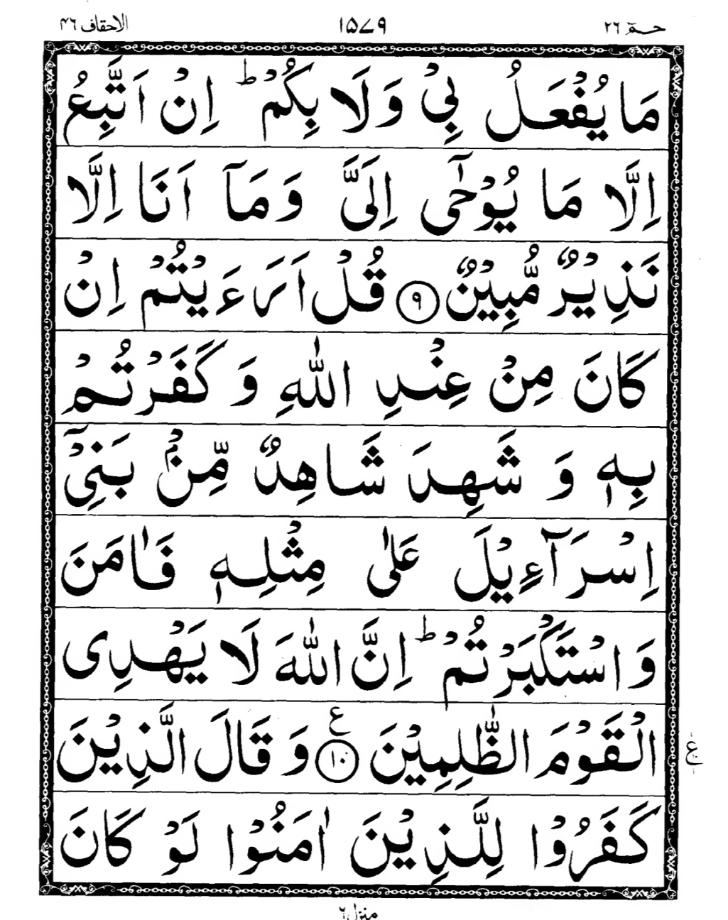 حـٰمٓ ٢٦ ١٥٧٩ الاحقاف ٤٦
مَا يُفْعَلُ بِيْ وَلَا بِكُمْ ؕ اِنْ اَتَّبِعُ
اِلَّا مَا يُوْحٰٓى اِلَيَّ وَمَاۤ اَنَا اِلَّا
نَذِيْرٌ مُّبِيْنٌ ۹ قُلْ اَرَءَيْتُمْ اِنْ
كَانَ مِنْ عِنْدِ اللّٰهِ وَ كَفَرْتُمْ
بِهٖ وَ شَهِدَ شَاهِدٌ مِّنْۢ بَنِيْۤ
اِسْرَآءِيْلَ عَلٰى مِثْلِهٖ فَاٰمَنَ
وَاسْتَكْبَرْتُمْ ؕ اِنَّ اللّٰهَ لَا يَهْدِى
الْقَوْمَ الظّٰلِمِيْنَ ١٠ ع وَ قَالَ الَّذِيْنَ ع
كَفَرُوْا لِلَّذِيْنَ اٰمَنُوْا لَوْ كَانَ
منزل ٦